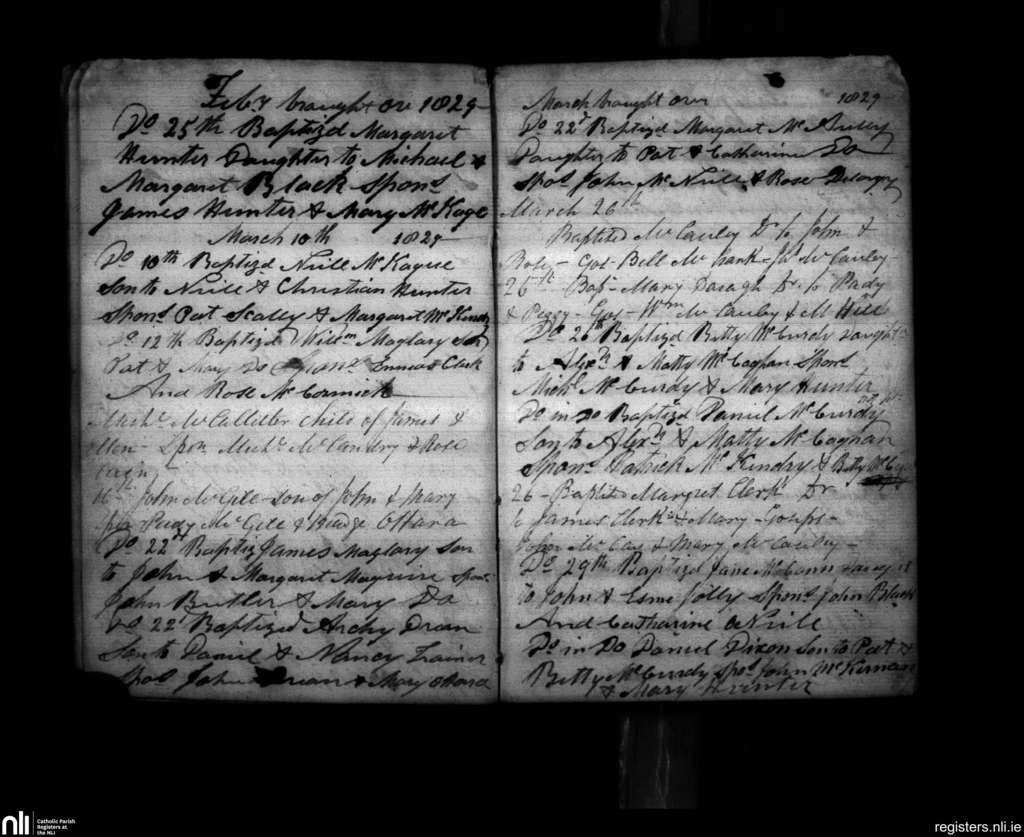 Feby brought ove 1829
Do 25th Baptizd Margaret
Hunter Daughter to Michael &
Margaret Black Spons
James Hunter & Mary McKage
March 10th 1829
Do 10th Baptizd Neill McKague
Son to Neill & Christian Hunter
Spons Pat Scally & Margaret McKendry
Do 12th Baptizd Willm Maglary Son
Pat & Mary Do Spons Clark
And Rose McCormick
Michl child of James &
Spon Michl & Rose
John McGee son of John & Mary
Pady McGee & OHara
Do 22d Baptiz James Maglary Son
to John & Margaret Maguire Spons
John Butler & Mary Do
Do 22d Baptized Archy Drean
Son to Daniel & Nancy Trainer
Spos John Drean & Mary OHara
March brought over 1829
Do 22d Baptizd Margaret McAuley
Daughter to Pat & Catharine Do
Spos John McNeill & Rose Delargy
March 26th
Baptised McCauley Dr to John &
Rose - Gos - Bell - Js McCauley -
26th Bap - Mary Daragh Dr to Pady
& Peggy - Gos - Wm McCauley & M Hill
Do 26th Baptizd Betty McCurdy Daught
to Alexr & Matty McCagnan Spons
Michl McCurdy & Mary Hunter
Do in Do Baptizd Daniel McCurdy
Son to Alexr & Matty McCagnan
Spons Patrick McKendry & Betty
26 - Baptisd Margret Clerk Dr
to James Clerk & Mary - Gosips -
John McCay & Mary McCauley -
Do 29th Baptizd Jane McCann
to John & Esme Jolly Spons John Black
And Catharine ONeill
Do in Do Daniel Dixon Son to Pat &
Betty McCurdy Spos John McKernan
& Mary Hunter
nli
Catholic Parish
Registers at
the NLI
registers.nli.ie